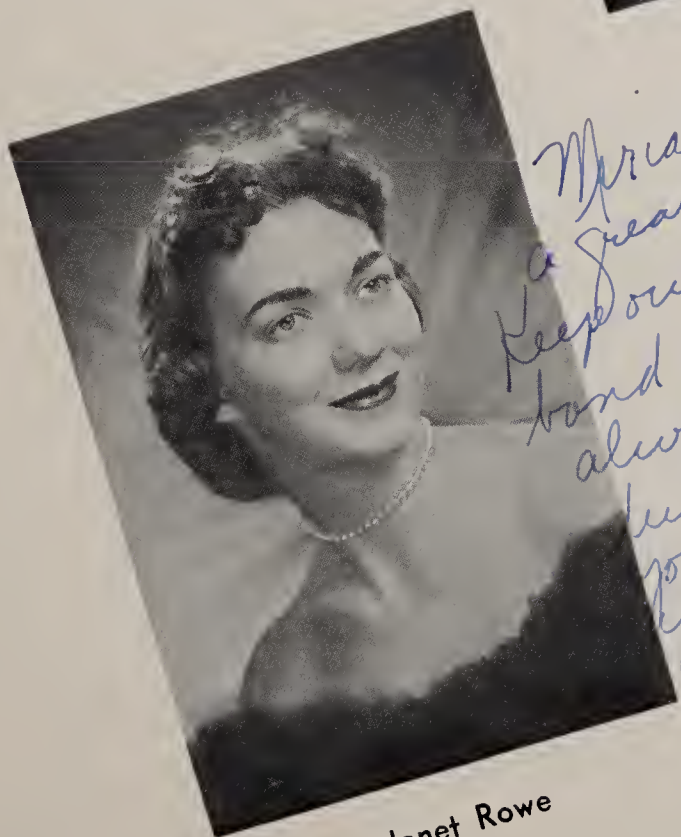 Miria
a grea
Keep ou
band
alw
Janet Rowe